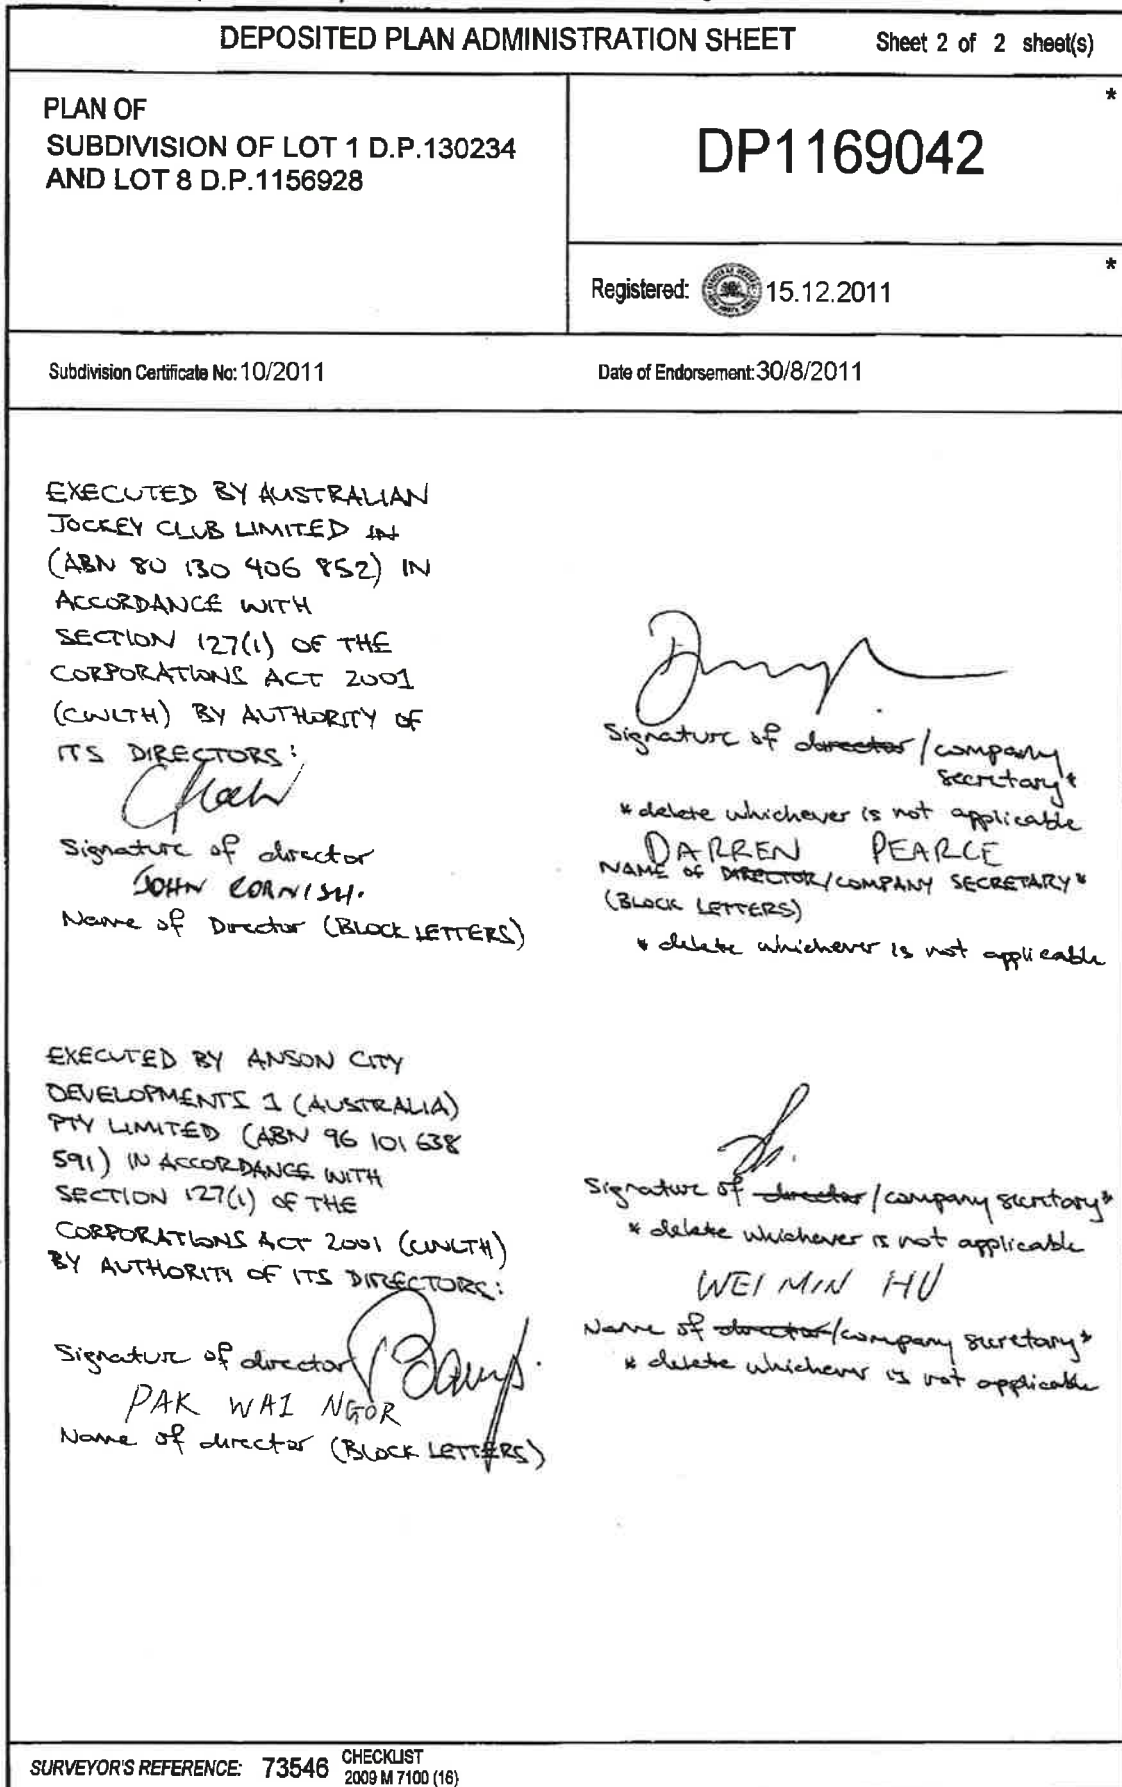 DEPOSITED PLAN ADMINISTRATION SHEET Sheet 2 of 2 sheet(s)
PLAN OF
SUBDIVISION OF LOT 1 D.P.130234
AND LOT 8 D.P.1156928
*
DP1169042
*
Registered: 15.12.2011
Subdivision Certificate No: 10/2011 Date of Endorsement: 30/8/2011
EXECUTED BY AUSTRALIAN
JOCKEY CLUB LIMITED IN
(ABN 80 130 406 852) IN
ACCORDANCE WITH
SECTION 127(1) OF THE
CORPORATIONS ACT 2001
(CWLTH) BY AUTHORITY OF
ITS DIRECTORS:
Signature of director
JOHN CORNISH.
Name of Director (BLOCK LETTERS)
Signature of director/company
secretary*
* delete whichever is not applicable
DARREN PEARCE
NAME OF DIRECTOR/COMPANY SECRETARY*
(BLOCK LETTERS)
* delete whichever is not applicable
EXECUTED BY ANSON CITY
DEVELOPMENTS 1 (AUSTRALIA)
PTY LIMITED (ABN 96 101 638
591) IN ACCORDANCE WITH
SECTION 127(1) OF THE
CORPORATIONS ACT 2001 (CWLTH)
BY AUTHORITY OF ITS DIRECTORS:
Signature of director
PAK WAI NGOR
Name of director (BLOCK LETTERS)
Signature of director/company secretary*
* delete whichever is not applicable
WEI MIN HU
Name of director/company secretary*
* delete whichever is not applicable
SURVEYOR'S REFERENCE: 73546 CHECKLIST
2009 M 7100 (16)